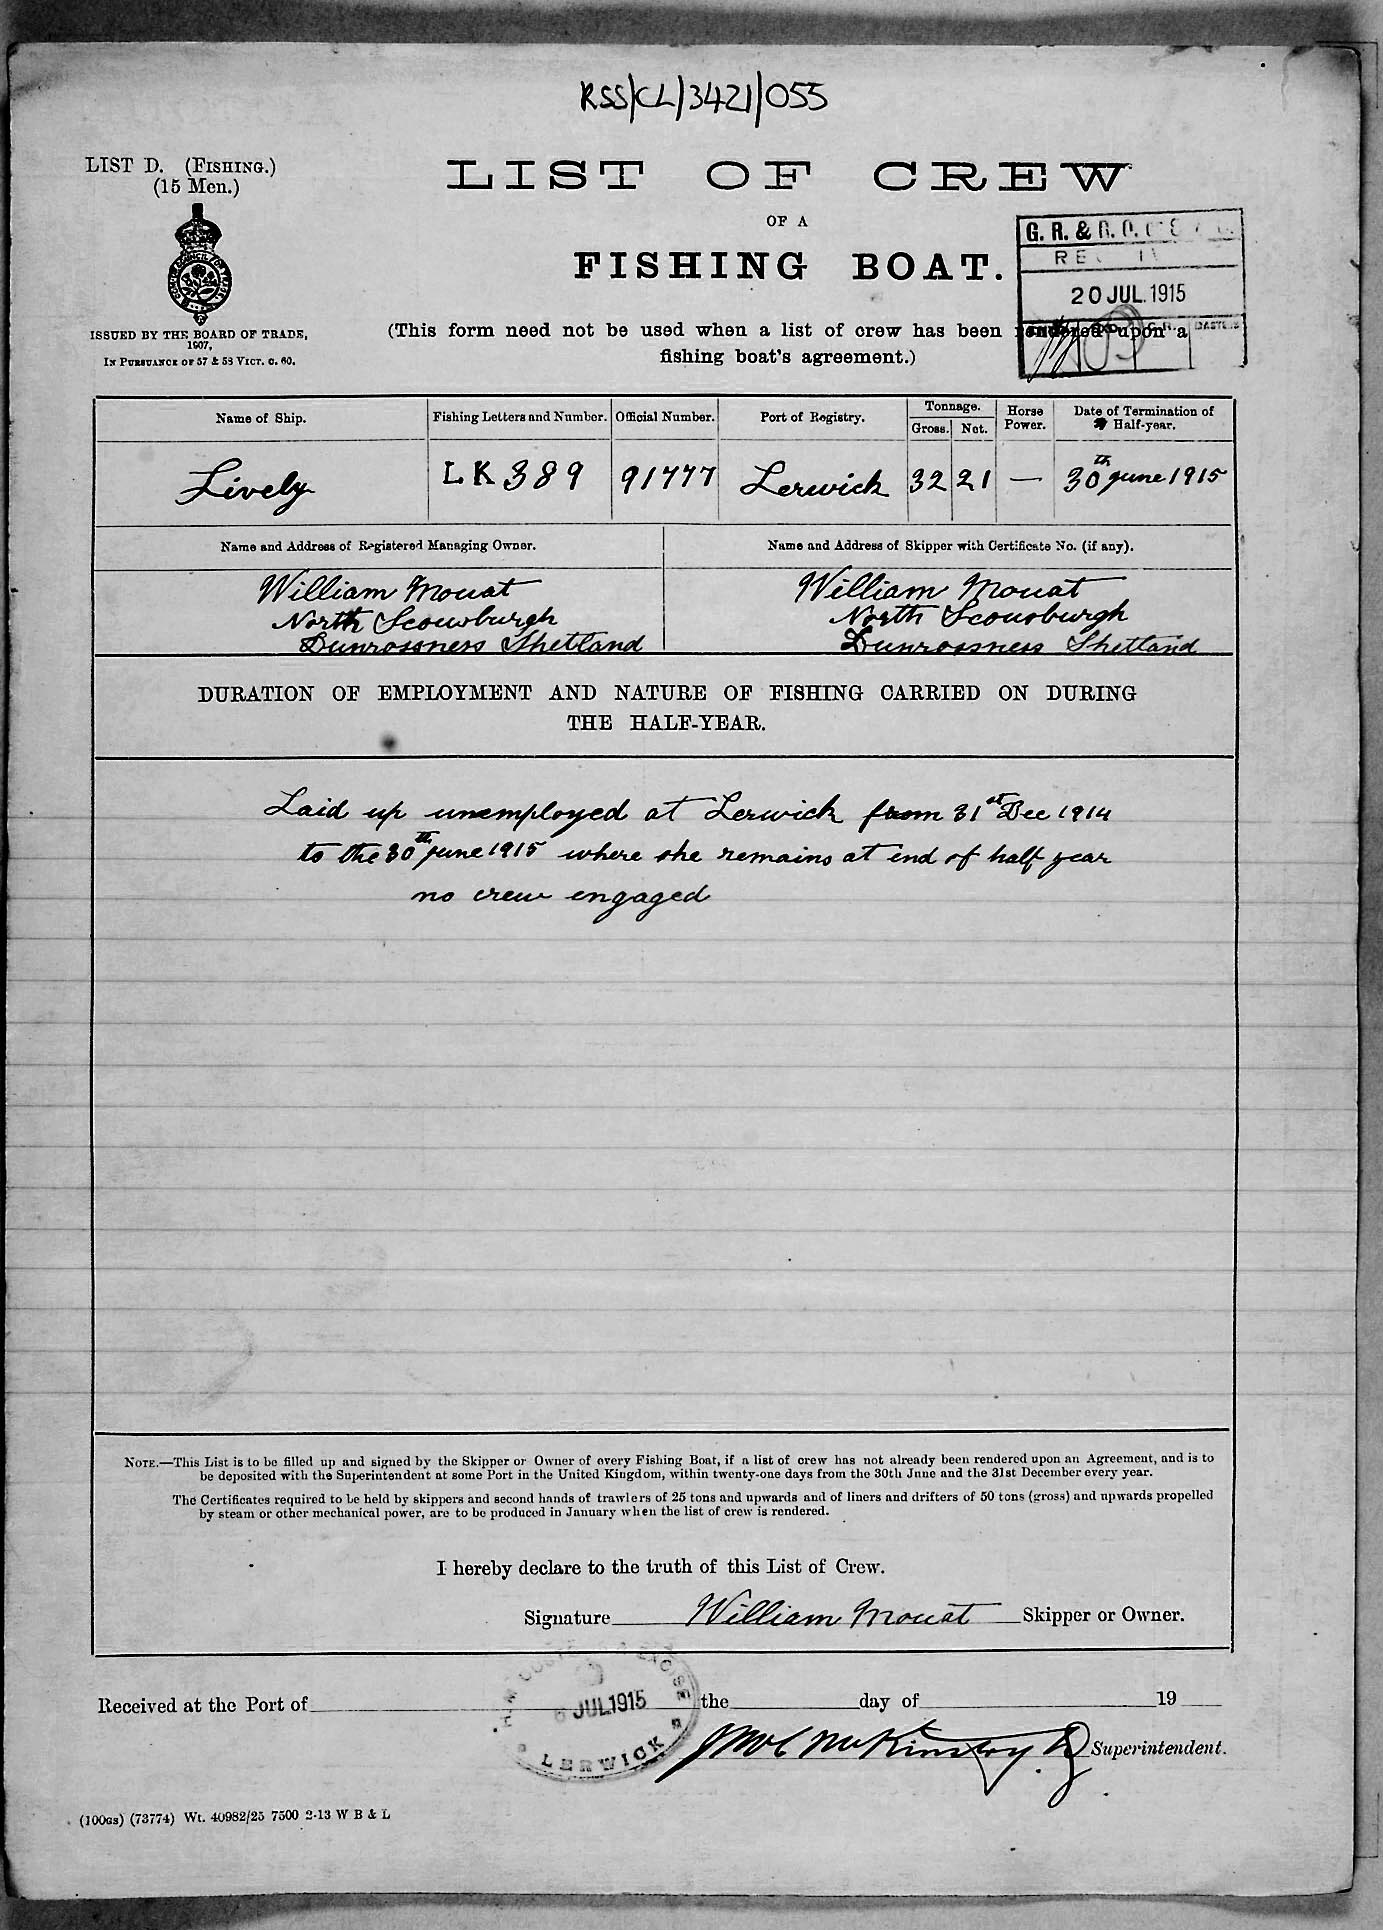 RSS/CL/3421/055
LIST D. (FISHING.)
(15 Men.)
LIST OF CREW
OF A
FISHING BOAT.
G. R. & 
20 JUL. 1915
ISSUED BY THE BOARD OF TRADE,
1907,
IN PURSUANCE OF 57 & 58 VICT. C. 60.
(This form need not be used when a list of crew has been rendered upon a
fishing boat's agreement.)
Name of Ship. Fishing Letters and Number. Official Number. Port of Registry. Tonnage. Gross. Net. Horse Power. Date of Termination of Half-year.
Lively LK 389 91777 Lerwick 32 21 — 30th June 1915
Name and Address of Registered Managing Owner. Name and Address of Skipper with Certificate No. (if any).
William Mouat William Mouat
North Scousburgh North Scousburgh
Dunrossness Shetland Dunrossness Shetland
DURATION OF EMPLOYMENT AND NATURE OF FISHING CARRIED ON DURING
THE HALF-YEAR.
Laid up unemployed at Lerwick from 31st Dec 1914
to the 30th June 1915 where she remains at end of half year
no crew engaged
NOTE.—This List is to be filled up and signed by the Skipper or Owner of every Fishing Boat, if a list of crew has not already been rendered upon an Agreement, and is to
be deposited with the Superintendent at some Port in the United Kingdom, within twenty-one days from the 30th June and the 31st December every year.
The Certificates required to be held by skippers and second hands of trawlers of 25 tons and upwards and of liners and drifters of 50 tons (gross) and upwards propelled
by steam or other mechanical power, are to be produced in January when the list of crew is rendered.
I hereby declare to the truth of this List of Crew.
Signature William Mouat Skipper or Owner.
Received at the Port of the day of 19
JUL 1915
LERWICK
Superintendent.
(100GS) (73774) Wt. 40982/25 7500 2-13 W B & L